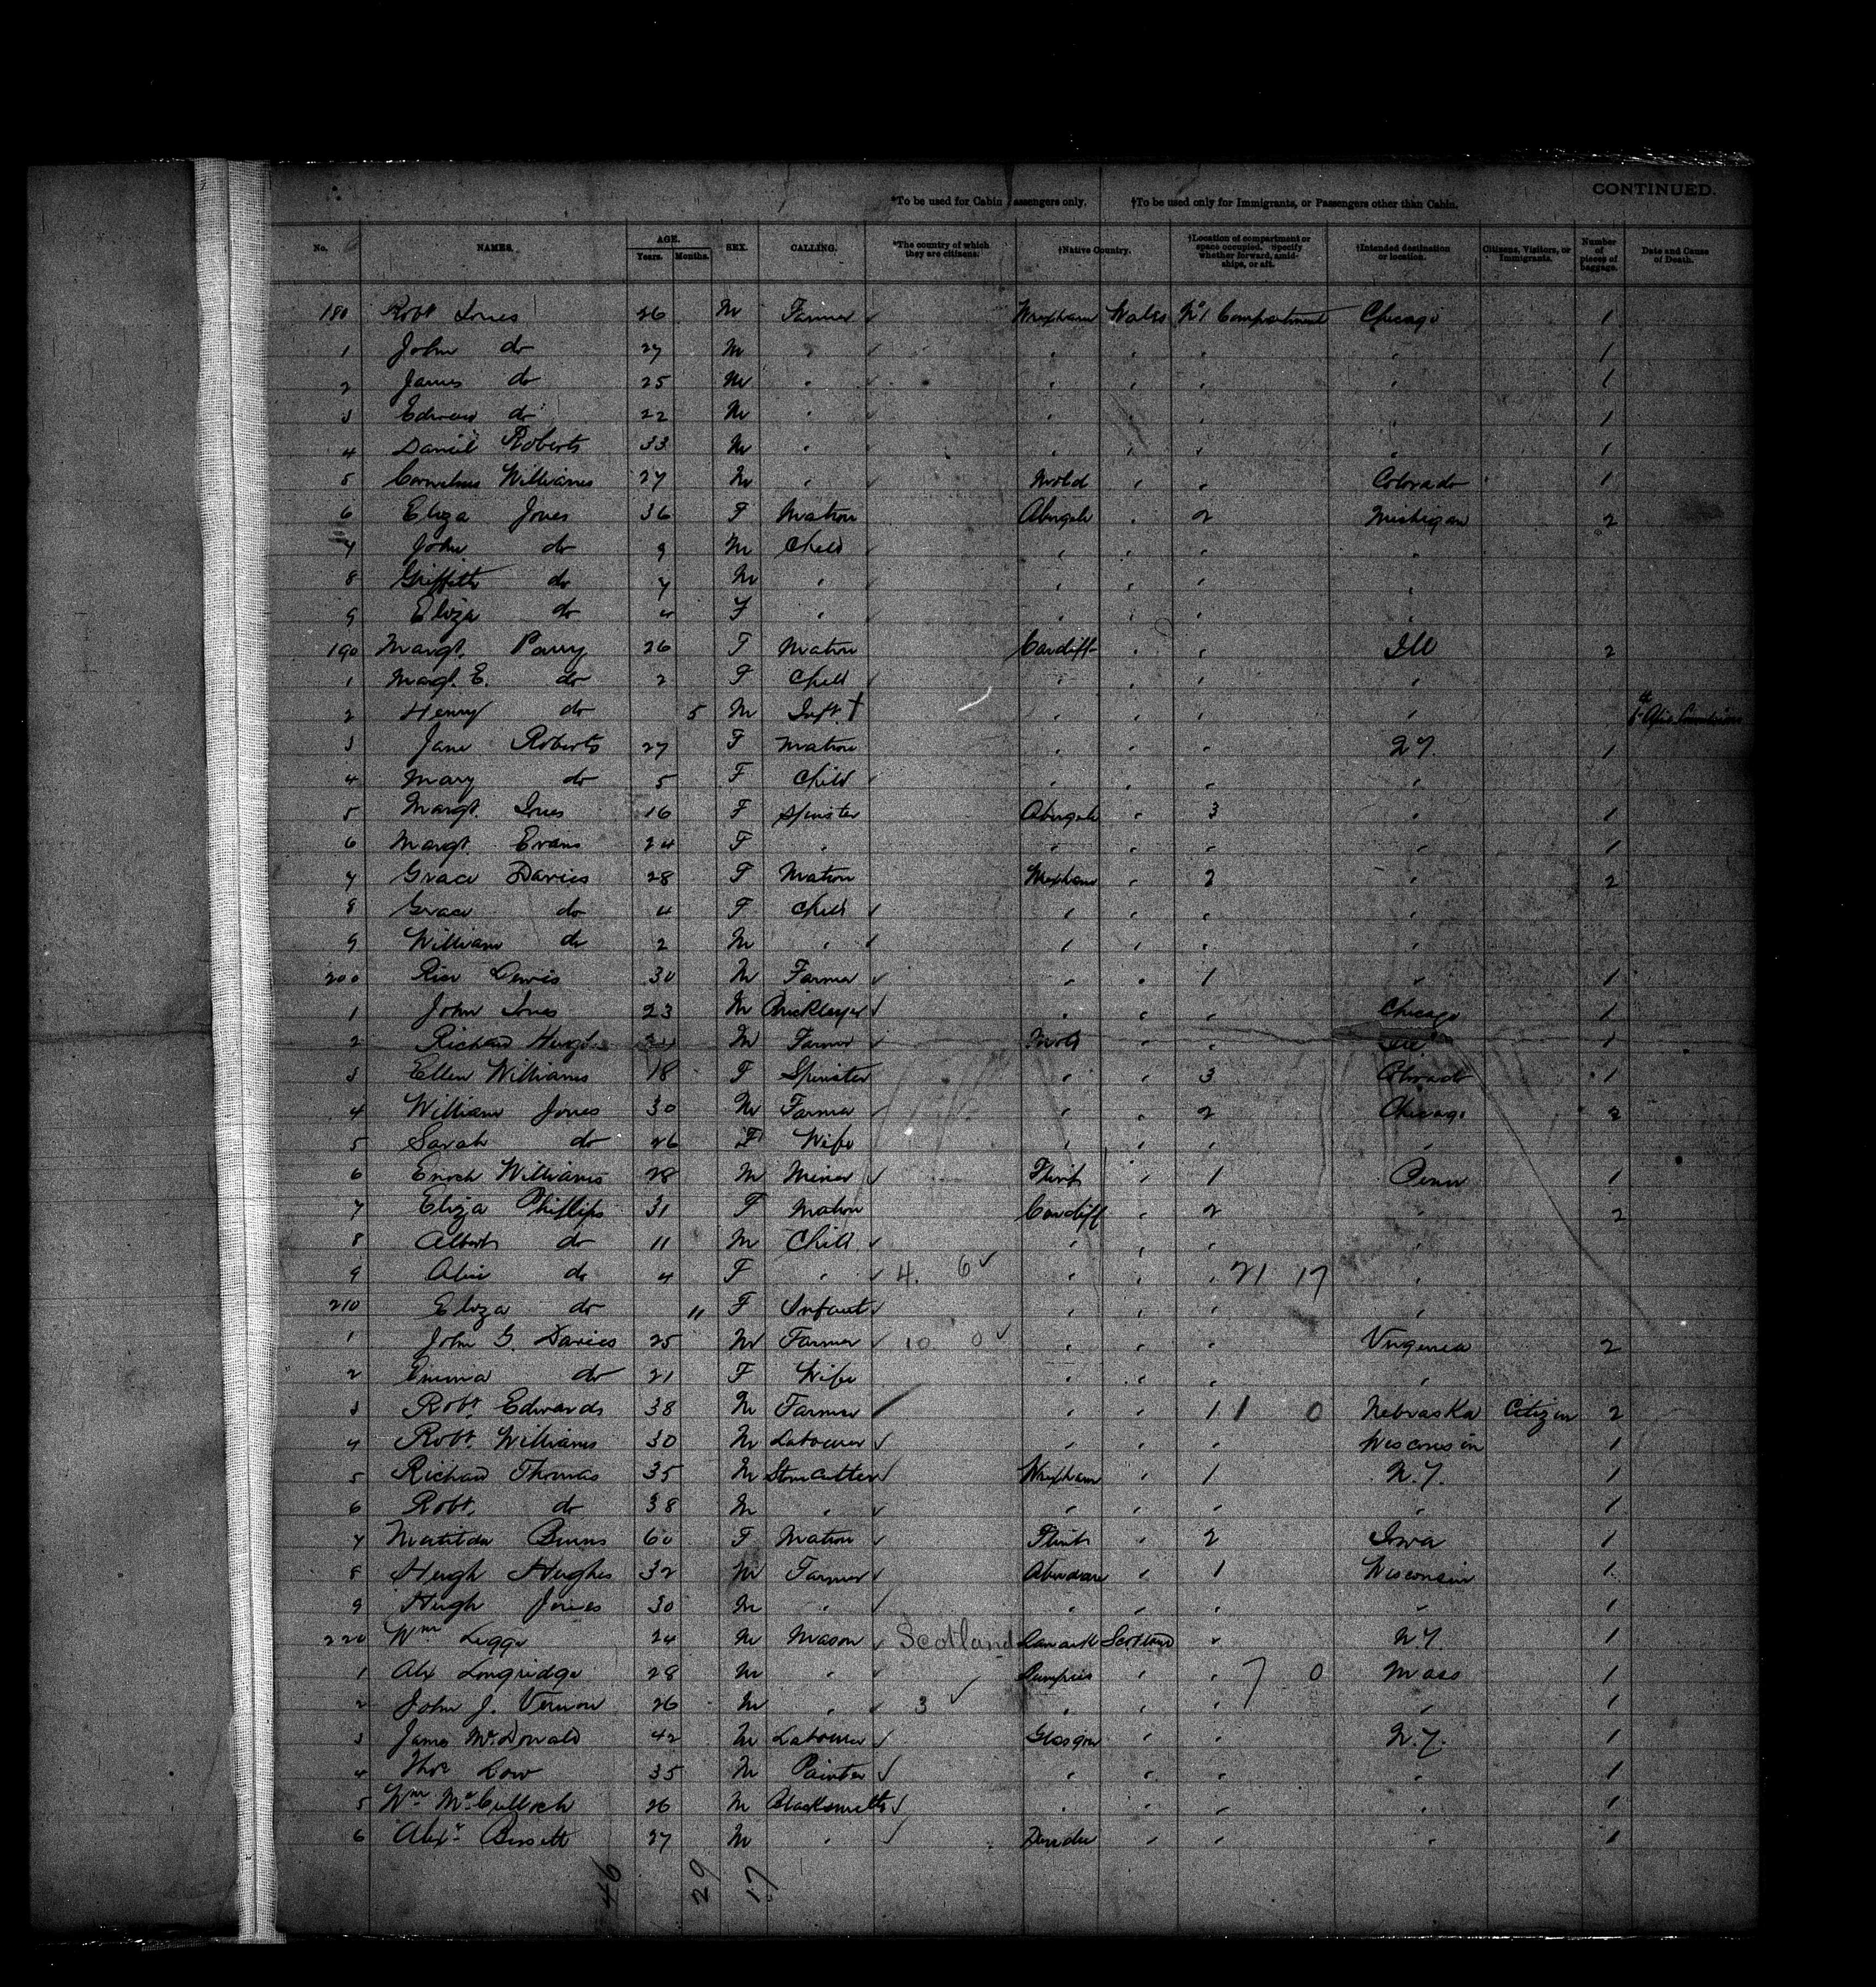 CONTINUED.
*To be used for Cabin Passengers only. †To be used only for Immigrants, or Passengers other than Cabin.
No. NAMES. AGE. Years. Months. SEX. CALLING. *The country of which they are citizens. †Native Country. †Location of compartment or space occupied. Specify whether forward, amidships, or aft. †Intended destination or location. Citizens, Visitors, or Immigrants. Number of pieces of baggage. Date and Cause of Death.
180 Robt Jones 26 M Farmer Wrexham Wales No 1 Compartment Chicago 1
1 John do 27 M " " " " " 1
2 James do 25 M " " " " " 1
3 Edward do 22 M " " " " " 1
4 Daniel Roberts 33 M " " " " " 1
5 Cornelius Williams 27 M " Mold " " Colorado 1
6 Eliza Jones 36 F Matron Abergele " 2 Michigan 2
7 John do 9 M Child " " " "
8 Griffith do 7 M " " " " "
9 Eliza do 4 F " " " " "
190 Margt. Parry 26 F Matron Cardiff " " Ill 2
1 Margt. E. do 2 F Child " " " "
2 Henry do 5 M Inft. † " " " "
3 Jane Roberts 27 F Matron " " " 1
4 Mary do 5 F Child " " " "
5 Margt. Jones 16 F Spinster Abergele " 3 " 1
6 Margt. Evans 24 F " " " " " 1
7 Grace Davies 28 F Matron Wrexham " 2 " 2
8 Grace do 4 F Child " " " "
9 William do 2 M " " " " "
200 Lewis 30 M Farmer " " 1 " 1
1 John Jones 23 M Bricklayer " " " Chicago 1
2 Richard Hughes M Farmer Mold " " Ill 1
3 Ellen Williams 18 F Spinster " " 3 Colorado 1
4 William Jones 30 M Farmer " " 2 Chicago 2
5 Sarah do 26 F Wife " " " "
6 Enoch Williams 28 M Miner Flint " 1 Penn 1
7 Eliza Phillips 31 F Matron Cardiff " 2 " 2
8 Albert do 11 M Child " " " "
9 Alice do 4 F " 4. 6 " " " 21 17 "
210 Eliza do 11 F Infant " " " "
1 John G. Davies 25 M Farmer 10 0 " " " Virginia 2
2 Emma do 21 F Wife " " " "
3 Robt. Edwards 38 M Farmer " " 1 1 0 Nebraska Citizen 2
4 Robt. Williams 30 M Labourer " " " Wisconsin 1
5 Richard Thomas 35 M Stonecutter Wrexham " 1 N.Y. 1
6 Robt. do 38 M " " " " " 1
7 Matilda Burns 60 F Matron Flint " 2 Iowa 1
8 Hugh Hughes 32 M Farmer Aberdare " 1 Wisconsin 1
9 Hugh Jones 30 M " " " " " 1
220 Wm Legge 24 M Mason Scotland Lanark Scotland " N.Y. 1
1 Alex Longridge 28 M " Dumfries " " 7 0 Mass 1
2 John J. Vernon 26 M " 3 " " " " 1
3 James McDonald 42 M Labourer Glasgow " " N.Y. 1
4 Thos Low 35 M Painter " " " " 1
5 Wm McCulloch 26 M Blacksmith " " " " 1
6 Alexr Bissett 27 M " Dundee " " " 1
46 29 17